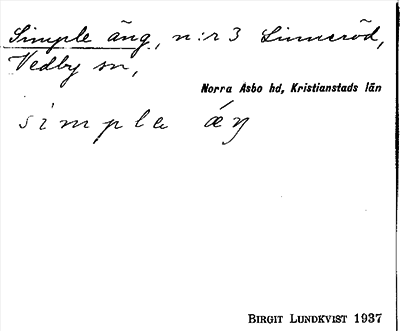 Simple äng, n:r 3 Linneröd,
Vedby sn,
Norra Åsbo hd, Kristianstads län
simpla ǽŋ
BIRGIT LUNDKVIST 1937